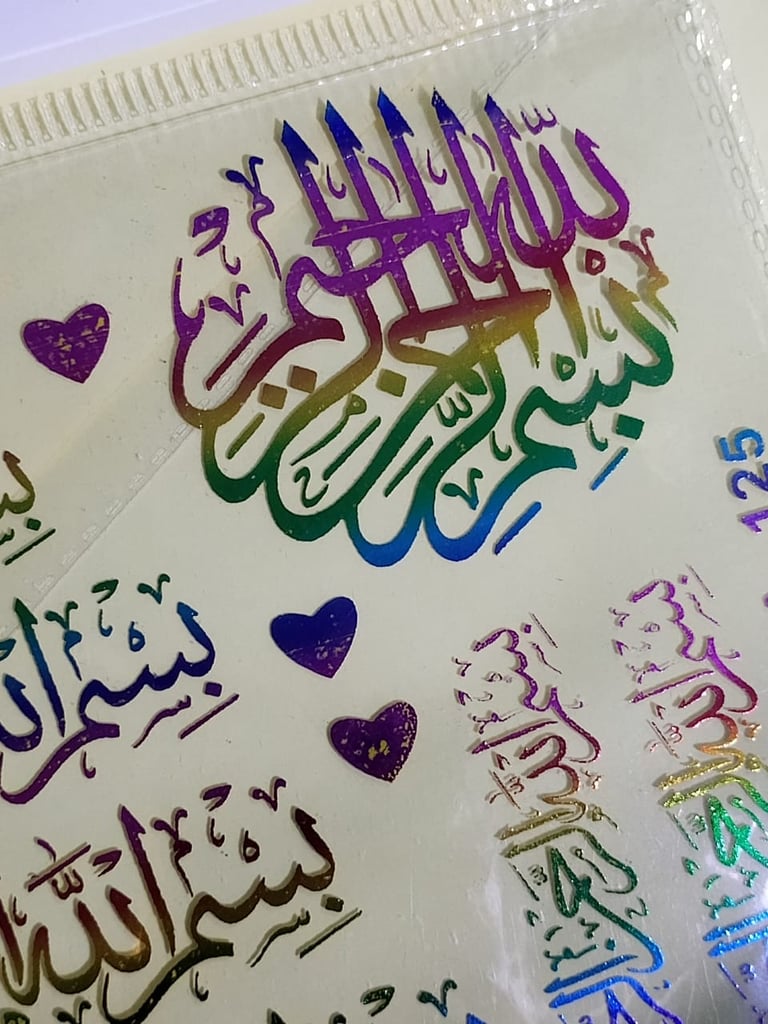 بسم الله الرحمن الرحيم
125
بسم الله
بسم الله
بسم الله الرحمن
بسم الله الرحمن